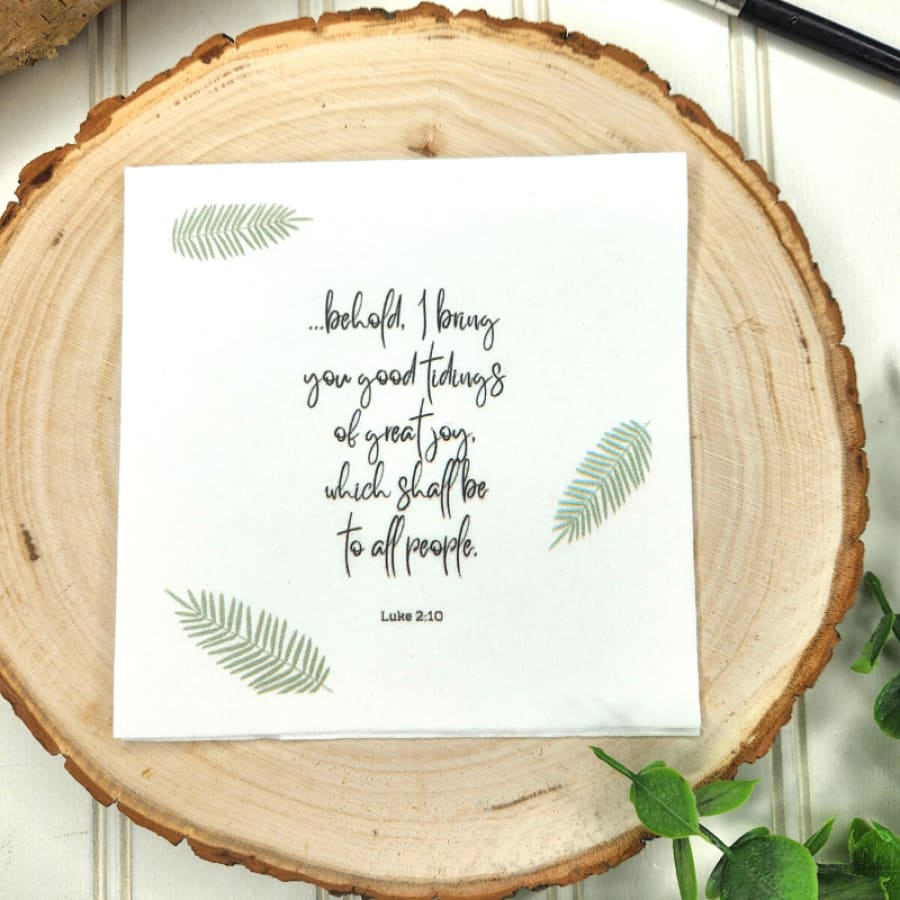 ...behold, I bring
you good tidings
of great joy,
which shall be
to all people.
Luke 2:10